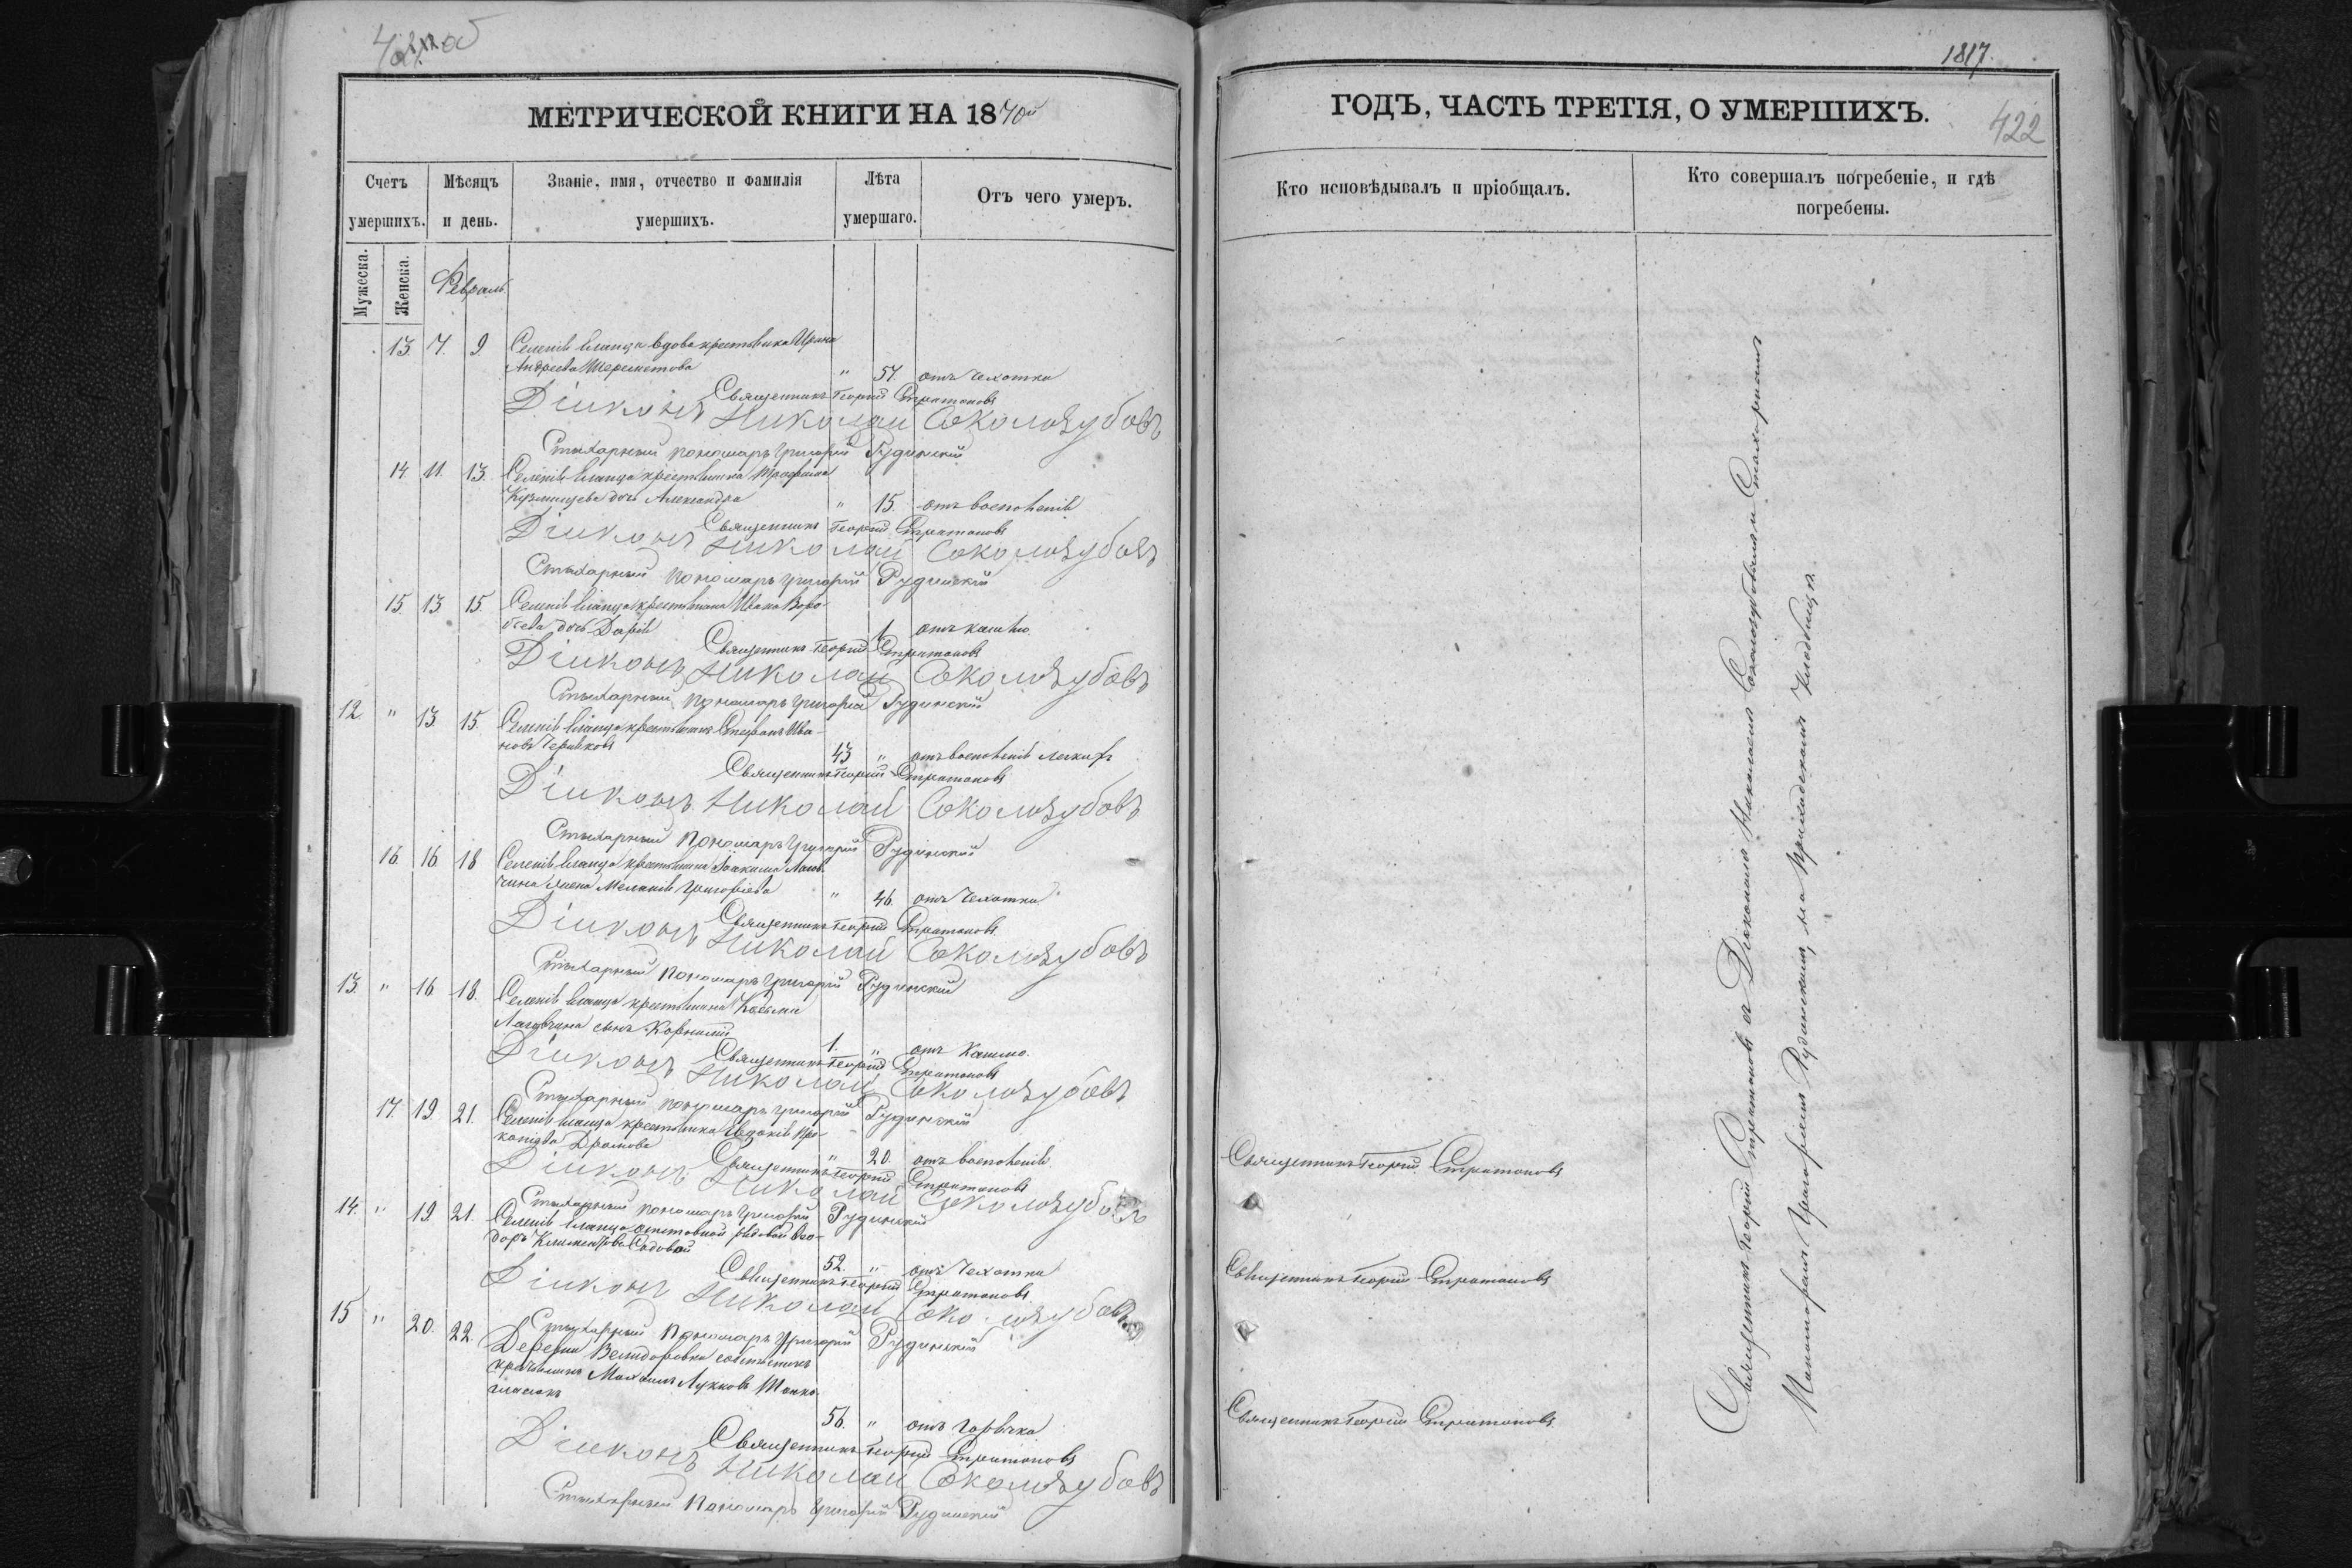 МЕТРИЧЕСКОЙ КНИГИ НА 1870й
Счетъ умершихъ.
Мѣсяцъ и день.
Званіе, имя, отчество и фамилія умершихъ.
Лѣта умершаго.
Отъ чего умеръ.
Мужеска.
Женска.
Февраль.
13. 7. 9. вдова крестьянка Ирина
Андреева Шереметова
" 57. отъ чахотки
Священникъ Георгій Стратоновъ
Діаконъ Николай Соколозубовъ
Стихарный пономарь Григорій Рудинскій
14 11. 13. крестьянина Трофима
дочь Александра
" 15. отъ воспаленія
Священникъ Георгій Стратоновъ
Діаконъ Николай Соколозубовъ
Стихарный пономарь Григорій Рудинскій
15 13 15 крестьянина Ивана Воро-
бьева дочь Дарія
1. отъ кашлю
Священникъ Георгій Стратоновъ
Діаконъ Николай Соколозубовъ
Стихарный пономарь Григорій Рудинскій
12. " 13 15. крестьянинъ Стефанъ Ива-
новъ
43 " отъ воспаленія легкихъ
Священникъ Георгій Стратоновъ
Діаконъ Николай Соколозубовъ
Стихарный пономарь Григорій Рудинскій
16. 16 18 крестьянина Іоакима
жена Меланія Григоріева
" 46. отъ чахотки
Священникъ Георгій Стратоновъ
Діаконъ Николай Соколозубовъ
Стихарный пономарь Григорій Рудинскій
13. " 16 18. крестьянина Косьмы
сынъ Корнилій
1. " отъ кашлю.
Священникъ Георгій Стратоновъ
Діаконъ Николай Соколозубовъ
Стихарный пономарь Григорій Рудинскій
17. 19. 21. крестьянка Евдокія Про-
копіева
" 20. отъ воспаленія
Священникъ Георгій Стратоновъ
Діаконъ Николай Соколозубовъ
Стихарный пономарь Григорій Рудинскій
14. " 19. 21. отставной рядовой Ѳео-
доръ Климентовъ Садовой
52. " отъ чахотки
Священникъ Георгій Стратоновъ
Діаконъ Николай Соколозубовъ
Стихарный пономарь Григорій Рудинскій
15 " 20. 22. Деревни собственникъ
крестьянинъ
56. " отъ горячки
Священникъ Георгій Стратоновъ
Діаконъ Николай Соколозубовъ
Стихарный пономарь Григорій Рудинскій
1817.
ГОДЪ, ЧАСТЬ ТРЕТІЯ, О УМЕРШИХЪ.
422
Кто исповѣдывалъ и пріобщалъ.
Кто совершалъ погребеніе, и гдѣ погребены.
Священникъ Георгій Стратоновъ
Священникъ Георгій Стратоновъ
Священникъ Георгій Стратоновъ
Священникъ Георгій Стратоновъ съ Діакономъ Николаемъ Соколозубовымъ и Стихарнымъ
Пономаремъ Григоріемъ Рудинскимъ, на приходскомъ кладбищѣ.